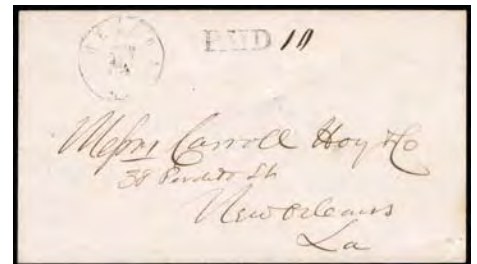 PAID 10
Messrs Carroll Hoy & Co
38 Perdido St
New Orleans
La